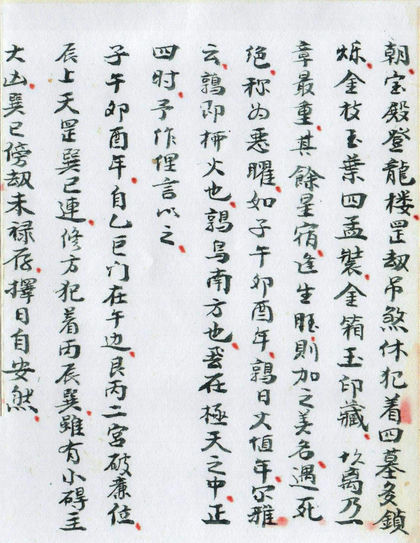 朝宝殿登龍楼罡劫吊煞休犯着四墓多鎖
烁金枝玉葉四孟裝金箱玉印藏坎离乃一
章最重其餘星宿逢生旺則加之美名遇死
绝称为恶曜如子午卯酉年鶉日火值年尔雅
云鶉即柳火也鶉鸟南方也昼在極天之中正
四时予作俚言以之
子午卯酉年自乙巨门在午边艮丙二宫破廉位
辰上天罡巽巳連修方犯着丙辰巽雖有小碍主
大凶巽巳傍劫未禄存擇日自安然